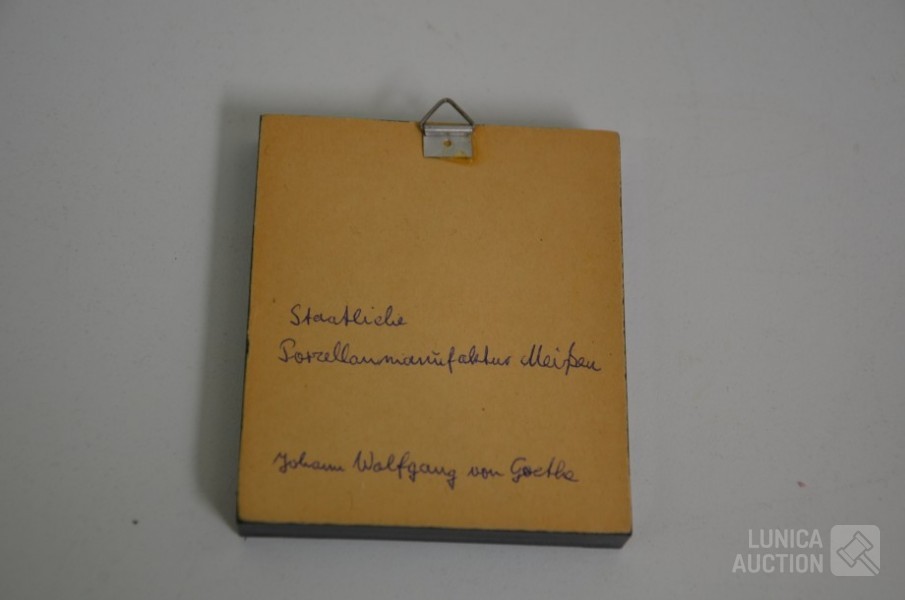 Staatliche
Porzellanmanufaktur Meißen
Johann Wolfgang von Goethe
LUNICA
AUCTION